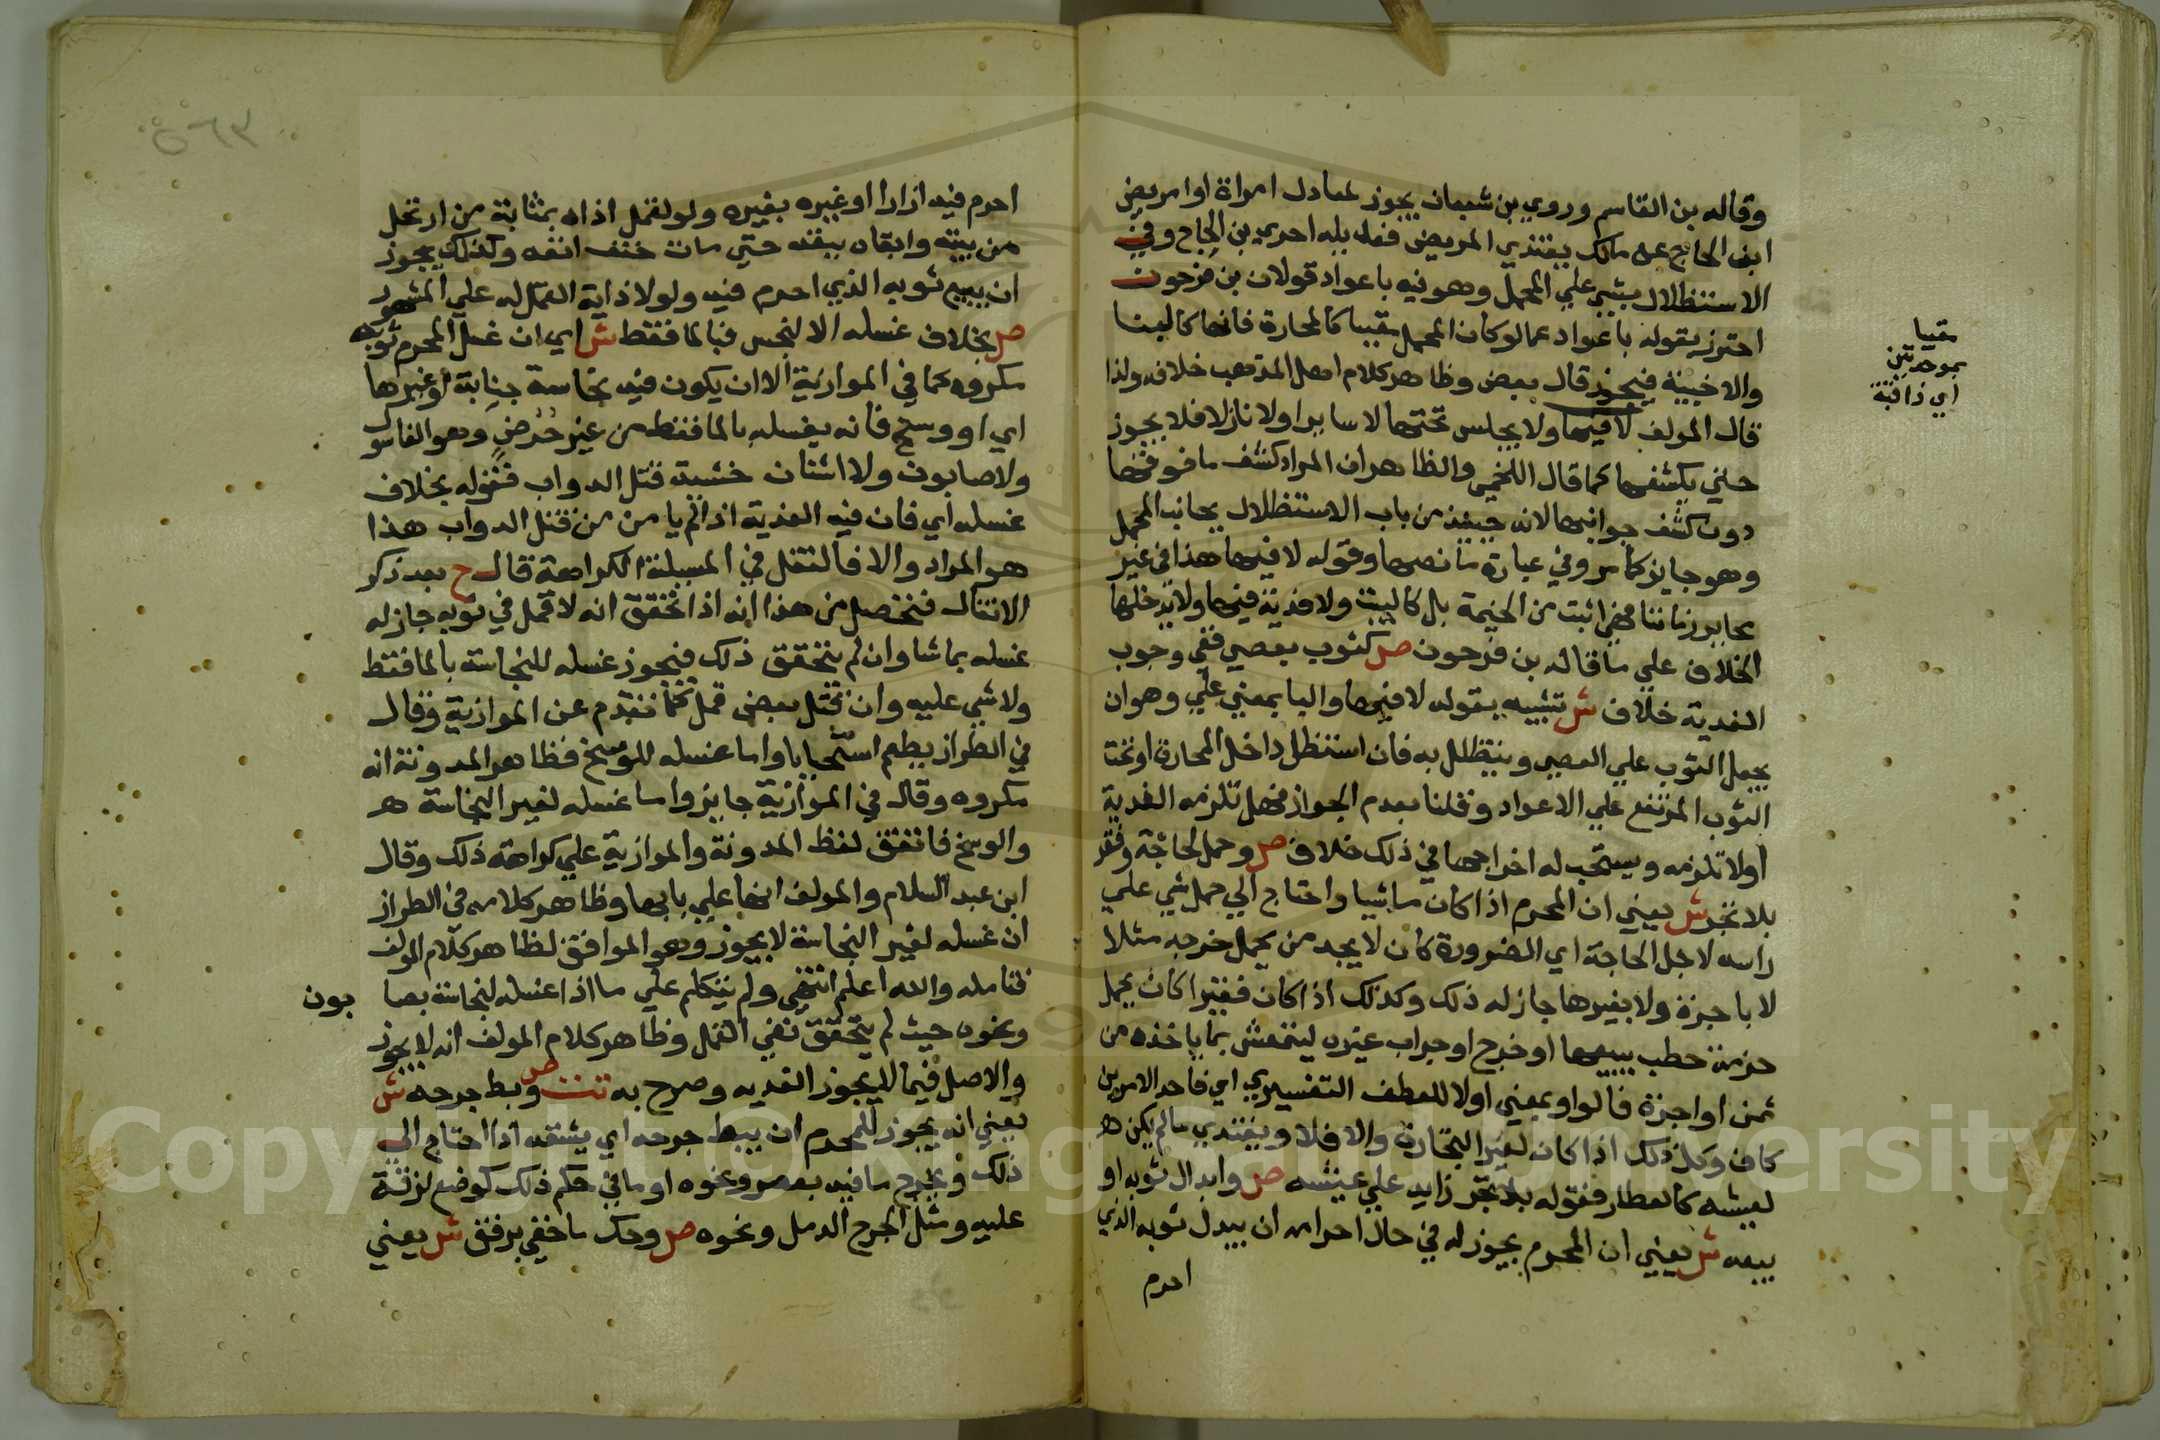 وقاله بن القاسم وروي بن شعبان يجوز لمعادل امراة او امريض
ابن الحاج عن مالك يفتدي المريض فعله بله احري بن الحاج وفي
الاستظلال بشي علي المحمل وهو فيه باعواد قولان بن فرحون
احترز بقوله باعواد عما لو كان المحمل مقببا كالمحارة فانها كالبنا
والاخبية فيجوز قال بعض وظاهر كلام اهل المذهب خلافه ولذا
قال المولف لا فيها ولا يجلس تحتها لا سايرا ولا نازلا فلا يجوز
حتي يكشفها كما قال اللخمي والظاهر ان المراد كشف ما فوقها
دون كشف جوانبها لانه حينئذ من باب الاستظلال بجانب المحمل
وهو جايز كما مر وفي عبارة ما نصها وقوله لا فيها هذا في غير
محاير زماننا فهي اثبت من الخيمة بل كالبيت ولا فدية فيها ولا يدخلها
الخلاف علي ما قاله بن فرحون ص كثوب بعصي ففي وجوب
الفدية خلاف ش تشبيه بقوله لا فيها والبا بمعني علي وهو ان
يجعل الثوب علي العصي ويتظلل به فان استظل داخل المحارة او تحت
الثوب المرتفع علي الاعواد وقلنا بعدم الجواز فهل تلزمه الفدية
اولا تلزمه ويستحب له اخراجها في ذلك خلاف ص وحمل لحاجة وفقر
بلا تجر ش يعني ان المحرم اذا كان ماشيا واحتاج الي حمل شي علي
راسه لاجل الحاجة اي الضرورة كان لا يجد من يحمل خرجه مثلا
لا باجرة ولا بغيرها جاز له ذلك وكذلك اذا كان فقيرا كان يحمل
حزمة حطب يبيعها او خرج او جراب غيره ليتمعش بما ياخذه من
ثمن او اجرة فالواو بمعني او لا للعطف التفسيري اي فاحد الامرين
كاف وكل ذلك اذا كان لغير التجارة والا فلا ويفتدي ما لم يكن ه
لعيشه كالعطار فقوله بلا تجر زايد علي عيشه ص وابدال ثوبه او
بيعه ش يعني ان المحرم يجوز له في حال احرامه ان يبدل ثوبه الذي
احرم
مقببا
بموحدتين
اي ذا قبة
احرم فيه ازارا او غيره بغيره ولو لقمل اذاه بمثابة من ارتحل
من بيته وابقاه ببقه حتي مات حتف انفه وكذلك يجوز
ان يبيع ثوبه الذي احرم فيه ولو لاذاية القمل له علي المشهور
ص بخلاف غسله الا لنجس فبالما فقط ش اي ان غسل المحرم ثوبه
مكروه كما في الموازية الا ان يكون فيه نجاسة جنابة او غيرها
اي او وسخ فانه يغسله بالما فقط من غير حرض وهو الغاسول
ولا صابون ولا اشنان خشية قتل الدواب فقوله بخلاف
غسله اي فان فيه الفدية اذا لم يامن من قتل الدواب هذا
هو المراد والا فالنقل في المسيلة الكراهة قال ح بعد ذكر
الانقال فتحصل من هذا انه اذا تحقق انه لا قمل في ثوبه جاز له
غسله بما شا وان لم يتحقق ذلك فيجوز غسله للنجاسة بالما فقط
ولا شي عليه وان قتل بعض قمل كما تقدم عن الموازية وقال
في الطراز يطعم استحبابا واما غسله للوسخ فظاهر المدونة انه
مكروه وقال في الموازية جايز واما غسله لغير النجاسة ه
والوسخ فاتفق لفظ المدونة والموازية علي كراهة ذلك وقال
ابن عبد السلام والمولف انها علي بابها وظاهر كلامه في الطراز
ان غسله لغير النجاسة لا يجوز وهو الموافق لظاهر كلام المولف
فتامله والله اعلم انتهي ولم يتكلم علي ما اذا غسله لنجاسة بصا بون
ونحوه حيث لم يتحقق نفي القمل وظاهر كلام المولف انه لا يجوز
والاصل فيما لا يجوز الفدية وصرح به تت ص وبط جرحه ش
يعني انه يجوز للمحرم ان يبط جرحه اي يشقه اذا احتاج الي
ذلك ويخرج ما فيه بعصر ونحوه او ما في حكم ذلك كوضع لزقة
عليه ومثل الجرح الدمل ونحوه ص وحك ما خفي برفق ش يعني
Copyright © King Saud University